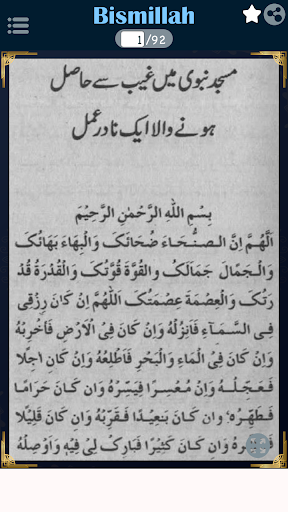 Bismillah
1/92
مسجد نبوی میں غیب سے حاصل
ہونے والا ایک نادر عمل
بِسْمِ اللهِ الرَّحْمٰنِ الرَّحِيْمِ
اَللّٰهُمَّ اِنَّ الضُّحَاءَ ضُحَائَكَ وَالْبِهَاءَ بَهَائَكَ
وَالْجَمَالَ جَمَالَكَ وَالْقُوَّةَ قُوَّتَكَ وَالْقُدْرَةَ قُدْ
رَتَكَ وَالْعِصْمَةَ عِصْمَتَكَ اَللّٰهُمَّ اِنْ كَانَ رِزْقِي
فِي السَّمَآءِ فَاَنْزِلْهُ وَاِنْ كَانَ فِي الْاَرْضِ فَاَخْرِجْهُ
وَاِنْ كَانَ فِي الْمَاءِ وَالْبَحْرِ فَاَطْلِعْهُ وَاِنْ كَانَ اٰجِلًا
فَعَجِّلْهُ وَاِنْ مُعْسِرًا فَيَسِّرْهُ وَاِنْ كَانَ حَرَامًا
فَطَهِّرْهُ وَاِنْ كَانَ بَعِيْدًا فَقَرِّبْهُ وَاِنْ كَانَ قَلِيْلًا
وَاِنْ كَانَ كَثِيْرًا فَبَارِكْ لِيْ فِيْهِ وَاَوْصِلْهُ